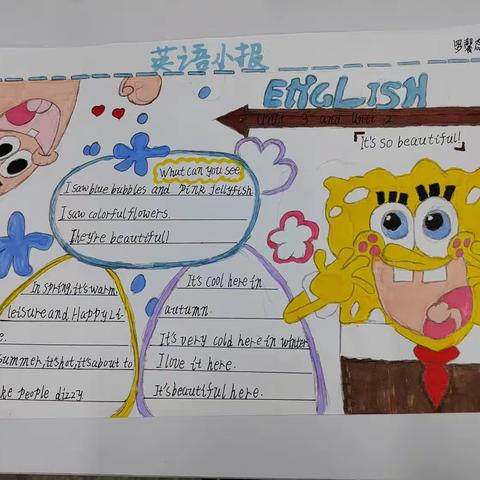 英语小报
ENGLISH
Unit 3 and Unit 2
「It's so beautiful!」
What can you see
I saw blue bubbles and pink jellyfish
I saw colorful flowers.
They're beautiful!
In spring, it's warm.
leisure and Happy Li
e.
summer, it's hot, it's about to
ke people dizzy
It's cool here in
autumn.
It's very cold here in winter
I love it here.
It's beautiful here.